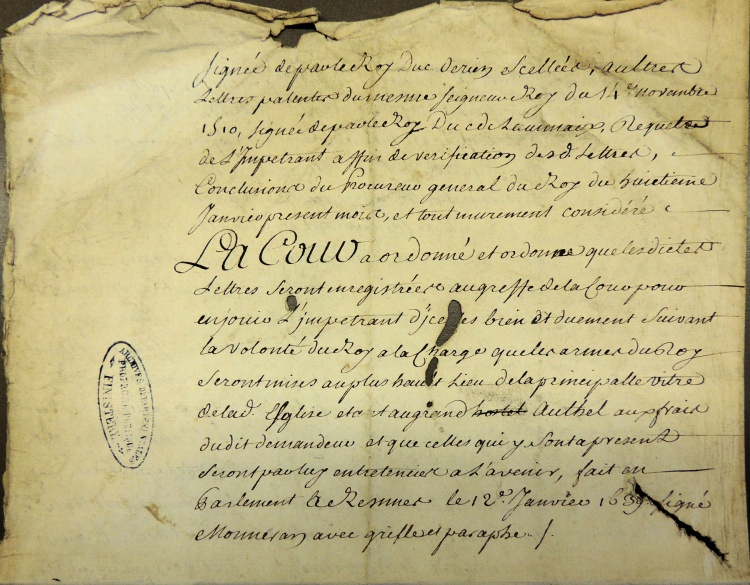 Signée de par le Roy Duc de rien Scellées, autres
Lettres patentes du mesme seigneur Roy du 14e. novembre
1510, signée de par le Roy Duc de Laumaix, Requete
de L'Impetrant affin de verification desd. Lettres,
Conclusions du Procureur general du Roy du huictieme
Janvier present mois, et tout murement considéré
La Cour a ordonné et ordonne que les dictes
Lettres seront enregistrées au greffe de la Cour pour
en jouir L'impetrant d'jcelles bien et duement suivant
la volonté du Roy a la Charge que les armes du Roy
seront mises au plus hault Lieu de la principalle vitre
de lad. Eglise et au grand hostel Authel aux frais
du dit demandeur et que celles qui y sont a present
seront par luy entretenües a L'avenir, fait en
Parlement a Rennes le 12e. Janvier signé
Monneran avec grille et paraphe ./.
ARCHIVES DEPARTEMENTALES
FINISTERE